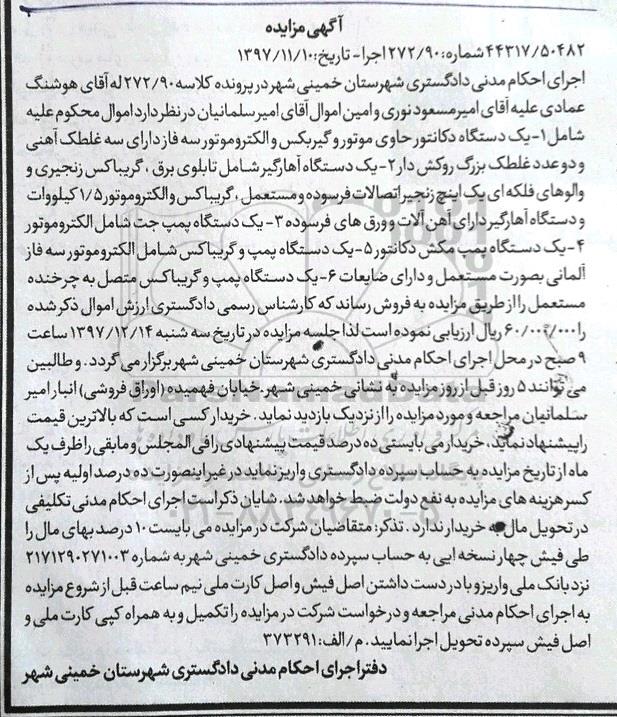 آگهی مزایده
۴۴۳۱۷/۵۰۴۸۲ شماره: ۲۷۲/۹۰ اجرا - تاریخ: ۱۳۹۷/۱۱/۱۰
اجرای احکام مدنی دادگستری شهرستان خمینی شهر در پرونده کلاسه ۲۷۲/۹۰ له آقای هوشنگ
عمادی علیه آقای امیر مسعود نوری و امین اموال آقای امیر سلمانیان در نظر دارد اموال محکوم علیه
شامل ۱- یک دستگاه دکانتور حاوی موتور و گیربکس و الکتروموتور سه فاز دارای سه غلطک آهنی
و دو عدد غلطک بزرگ روکش دار ۲- یک دستگاه آهارگیر شامل تابلوی برق ، گریباکس زنجیری و
والوهای فلکه ای یک اینچ زنجیر اتصالات فرسوده و مستعمل ، گریباکس و الکتروموتور ۱/۵ کیلووات
و دستگاه آهارگیر دارای آهن آلات و ورق های فرسوده ۳- یک دستگاه پمپ جت شامل الکتروموتور
۴- یک دستگاه پمپ مکش دکانتور ۵- یک دستگاه پمپ و گریباکس شامل الکتروموتور سه فاز
آلمانی بصورت مستعمل و دارای ضایعات ۶- یک دستگاه پمپ و گریباکس متصل به چرخنده
مستعمل را از طریق مزایده به فروش رساند که کارشناس رسمی دادگستری ارزش اموال ذکر شده
را ۶۰/۰۰۰/۰۰۰ ریال ارزیابی نموده است لذا جلسه مزایده در تاریخ سه شنبه ۱۳۹۷/۱۲/۱۴ ساعت
۹ صبح در محل اجرای احکام مدنی دادگستری شهرستان خمینی شهر برگزار می گردد . و طالبین
می توانند ۵ روز قبل از روز مزایده به نشانی خمینی شهر خیابان فهمیده (اوراق فروشی) انبار امیر
سلمانیان مراجعه و مورد مزایده را از نزدیک بازدید نماید . خریدار کسی است که بالاترین قیمت
را پیشنهاد نماید. خریدار می بایستی ده درصد قیمت پیشنهادی را فی المجلس و مابقی را ظرف یک
ماه از تاریخ مزایده به حساب سپرده دادگستری واریز نماید در غیر اینصورت ده درصد اولیه پس از
کسر هزینه های مزایده به نفع دولت ضبط خواهد شد. شایان ذکر است اجرای احکام مدنی تکلیفی
در تحویل مال به خریدار ندارد . تذکر: متقاضیان شرکت در مزایده می بایست ۱۰ درصد بهای مال را
طی فیش چهار نسخه ایی به حساب سپرده دادگستری خمینی شهر به شماره ۲۱۷۱۲۹۰۲۷۱۰۰۳
نزد بانک ملی واریز و با در دست داشتن اصل فیش و اصل کارت ملی نیم ساعت قبل از شروع مزایده
به اجرای احکام مدنی مراجعه و درخواست شرکت در مزایده را تکمیل و به همراه کپی کارت ملی و
اصل فیش سپرده تحویل اجرا نمایید . م/الف: ۳۷۳۲۹۱
دفتر اجرای احکام مدنی دادگستری شهرستان خمینی شهر